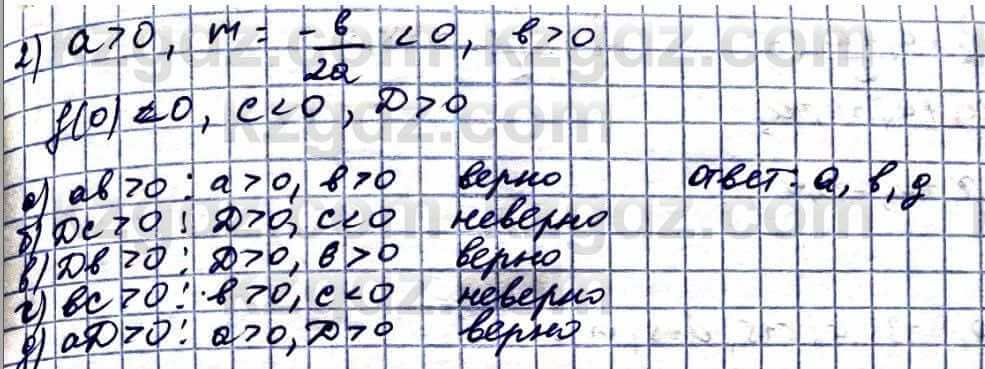 2) a>0, m = -b/2a <0, b>0
f(0)<0, c<0, D>0
а) ab>0 : a>0, b>0 верно ответ: а, в, д
б) Dc>0 : D>0, c<0 неверно
в) Db>0 : D>0, b>0 верно
г) bc>0 : b>0, c<0 неверно
д) aD>0 : a>0, D>0 верно
kzgdz.com
kzgdz.com